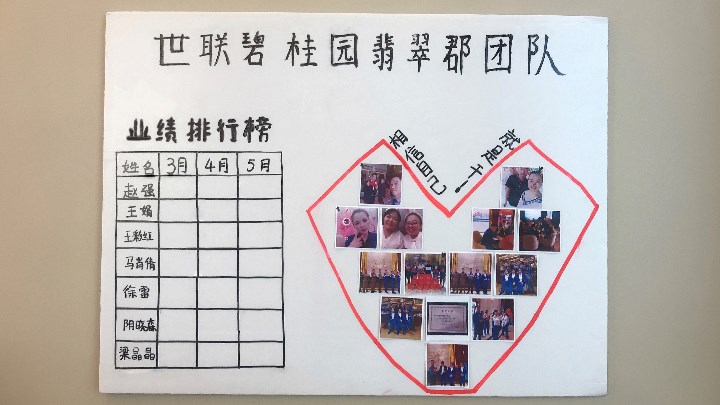 世联碧桂园翡翠郡团队
业绩排行榜
姓名 3月 4月 5月
赵强
王娟
王彩红
马肖倩
徐雷
阴晓森
梁晶晶
相信自己
就是干!